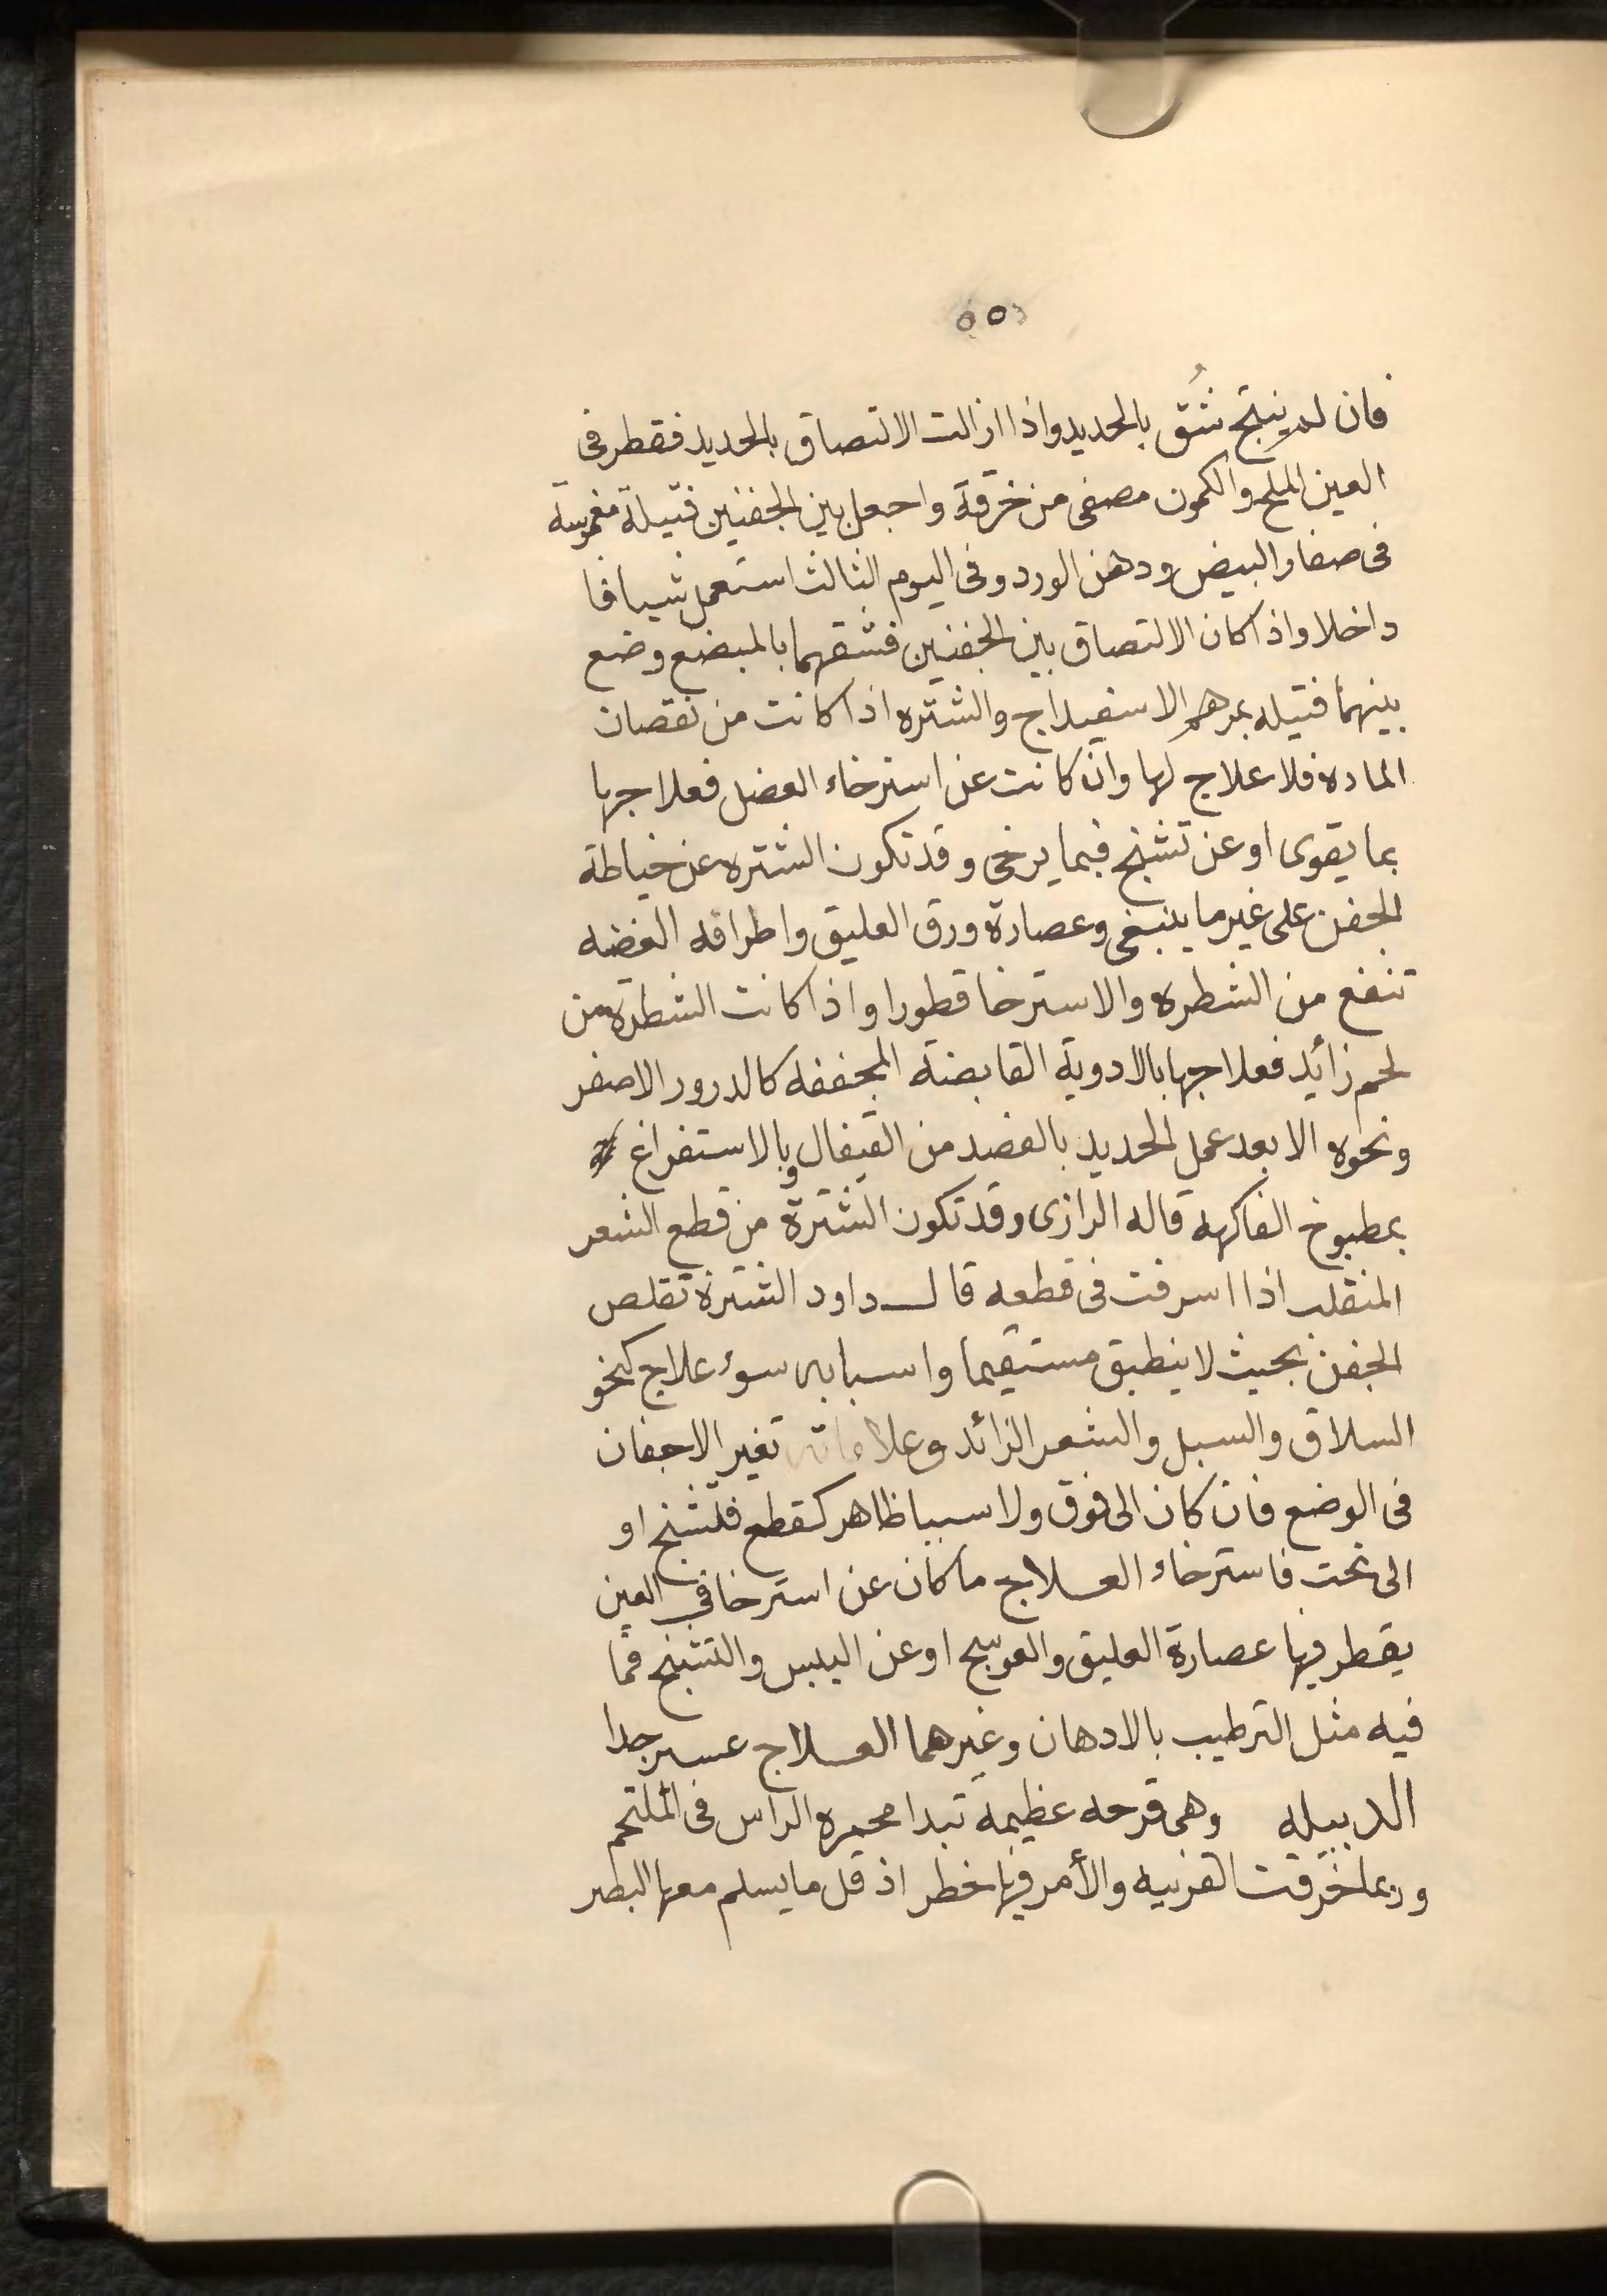 فان لم ينتج شُق بالحديد واذا ازالت الالتصاق بالحديد فقطر فى
العين الملح والكمون مصفى من خرقة واجعل بين الجفنين فتيلة مغموسة
فى صفار البيض ودهن الورد وفى اليوم الثالث استعمل شيافا
داخلا واذا كان الالتصاق بين الجفنين فشقهما بالمبضع وضع
بينهما فتيله بمرهم الاسفيداج والشتره اذا كانت من نقصان
الماده فلا علاج لها وان كانت عن استرخاء العضل فعلاجها
بما يقوى او عن تشنج فبما يرخى وقد تكون الشتره عن خياطة
الجفن على غير ما ينبغى وعصارة ورق العليق واطرافه الغضه
تنفع من الشطره والاسترخا قطورا واذا كانت الشطرة من
لحم زائد فعلاجها بالادوية القابضة المجففه كالدرور الاصفر
ونحوه الا بعد عمل الحديد بالفصد من القيفال وبالاستفراغ
بمطبوخ الفاكهه قاله الرازى وقد تكون الشترة من قطع الشعر
المنقلب اذا اسرفت فى قطعه قال داود الشترة تقلص
الجفن بحيث لا ينطبق مستقيما واسبابه سوء علاج كنحو
السلاق والسبل والشعر الزائد وعلاماته تغير الاجفان
فى الوضع فان كان الى فوق ولا سببا ظاهر كقطع فلتشنج او
الى تحت فاسترخاء العلاج ما كان عن استرخا في العين
يقطر فيها عصارة العليق والعوسج او عن اليبس والتشنج فما
فيه مثل الترطيب بالادهان وغيرهما العلاج عسر جدا
الدبيله وهى قرحه عظيمة تبدا محمره الراس فى الملتحم
وربما خرقت القرنيه والأمر فيها خطر اذ قل ما يسلم معها البصر